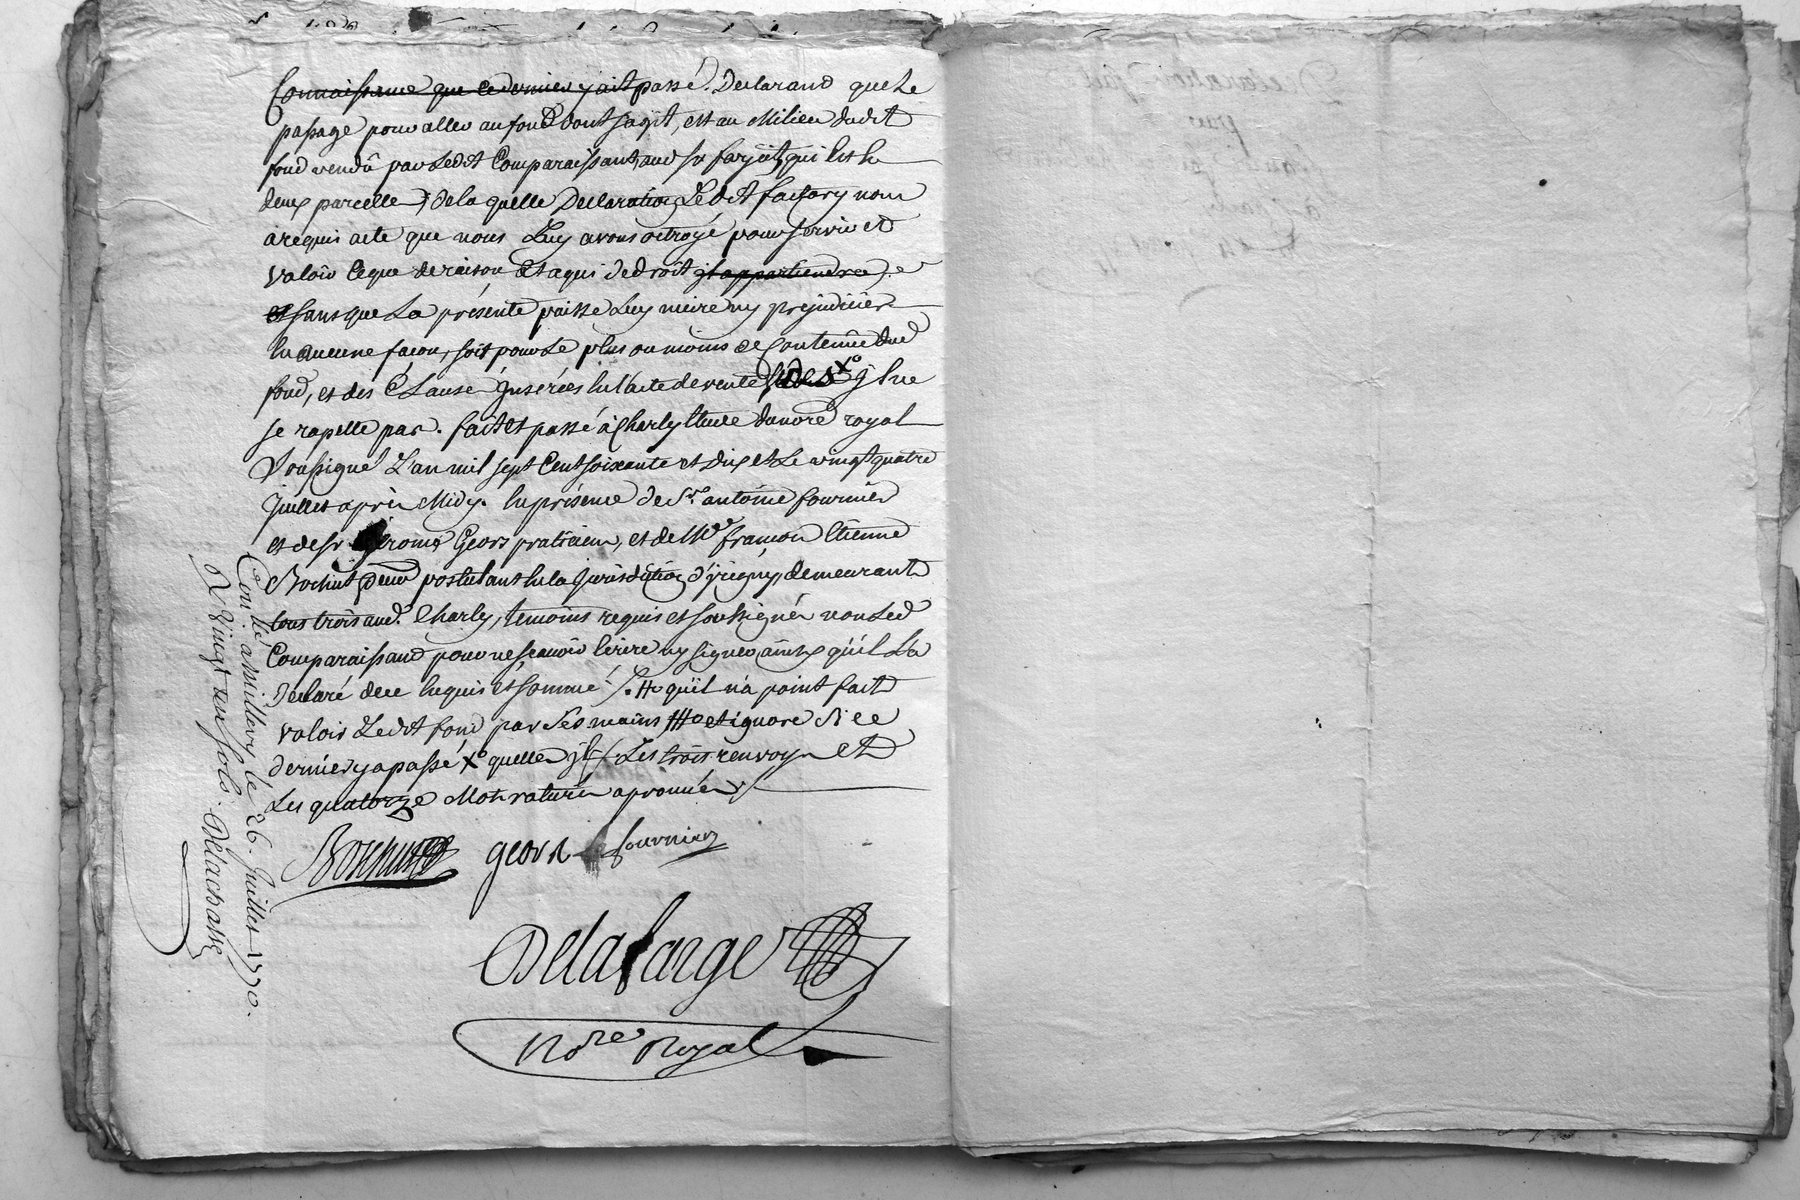 Connaissance que ce dernier y ait passé. Declarand que Le
passage pour aller au fond dont s'agit, est au Milieu dudit
fond vendû par Ledit Comparaissant, aud sr farjût, qui Est En
deux parcelle, de la quelle Declaration Ledit factory nous
à requis acte que nous Luy avons octroyé pour servir et
valoir Ceque de raison Et a qui de droit jl appartiendra,
et sans que La présente puisse Luy nuire ny prejudicier
En aucune façon, soit pour Le plus ou moins de Contenûe dud
fond, et des Clause Jnserées En l'acte de vente Xo jl ne
se rapelle pas. fait et passé à Charly Etude du no.re royal
Soussigné L'an mil sept Cent soixante et Dix et Le vingt quatre
Juillet après Midy. En présence de Sr. antoine fournier
et de sr Jerome Geors praticien, et de Me. françois Etienne
Bochut postulant En la Jurisdiction d'yrigny, demeurants
tous trois aud. Charly, temoins requis et soussignés non Led
Comparaissand pour ne scavoir Ecrire ny signer ainsy qu'il L'a
declaré de ce Enquis et sommé ./. # qu'il n'a point fait
valoir Ledit fond par ses mains # et ignore si ce
dernier y a passé Xo quelles jl / Les trois renvoys et
Les quatorze Mots raturés aprouvés
Bochut geors fournier
Delafarge
No.re Royal
Con.lé a Millery le 26. Juillet 1770.
R Vingt un sols. Delachasse